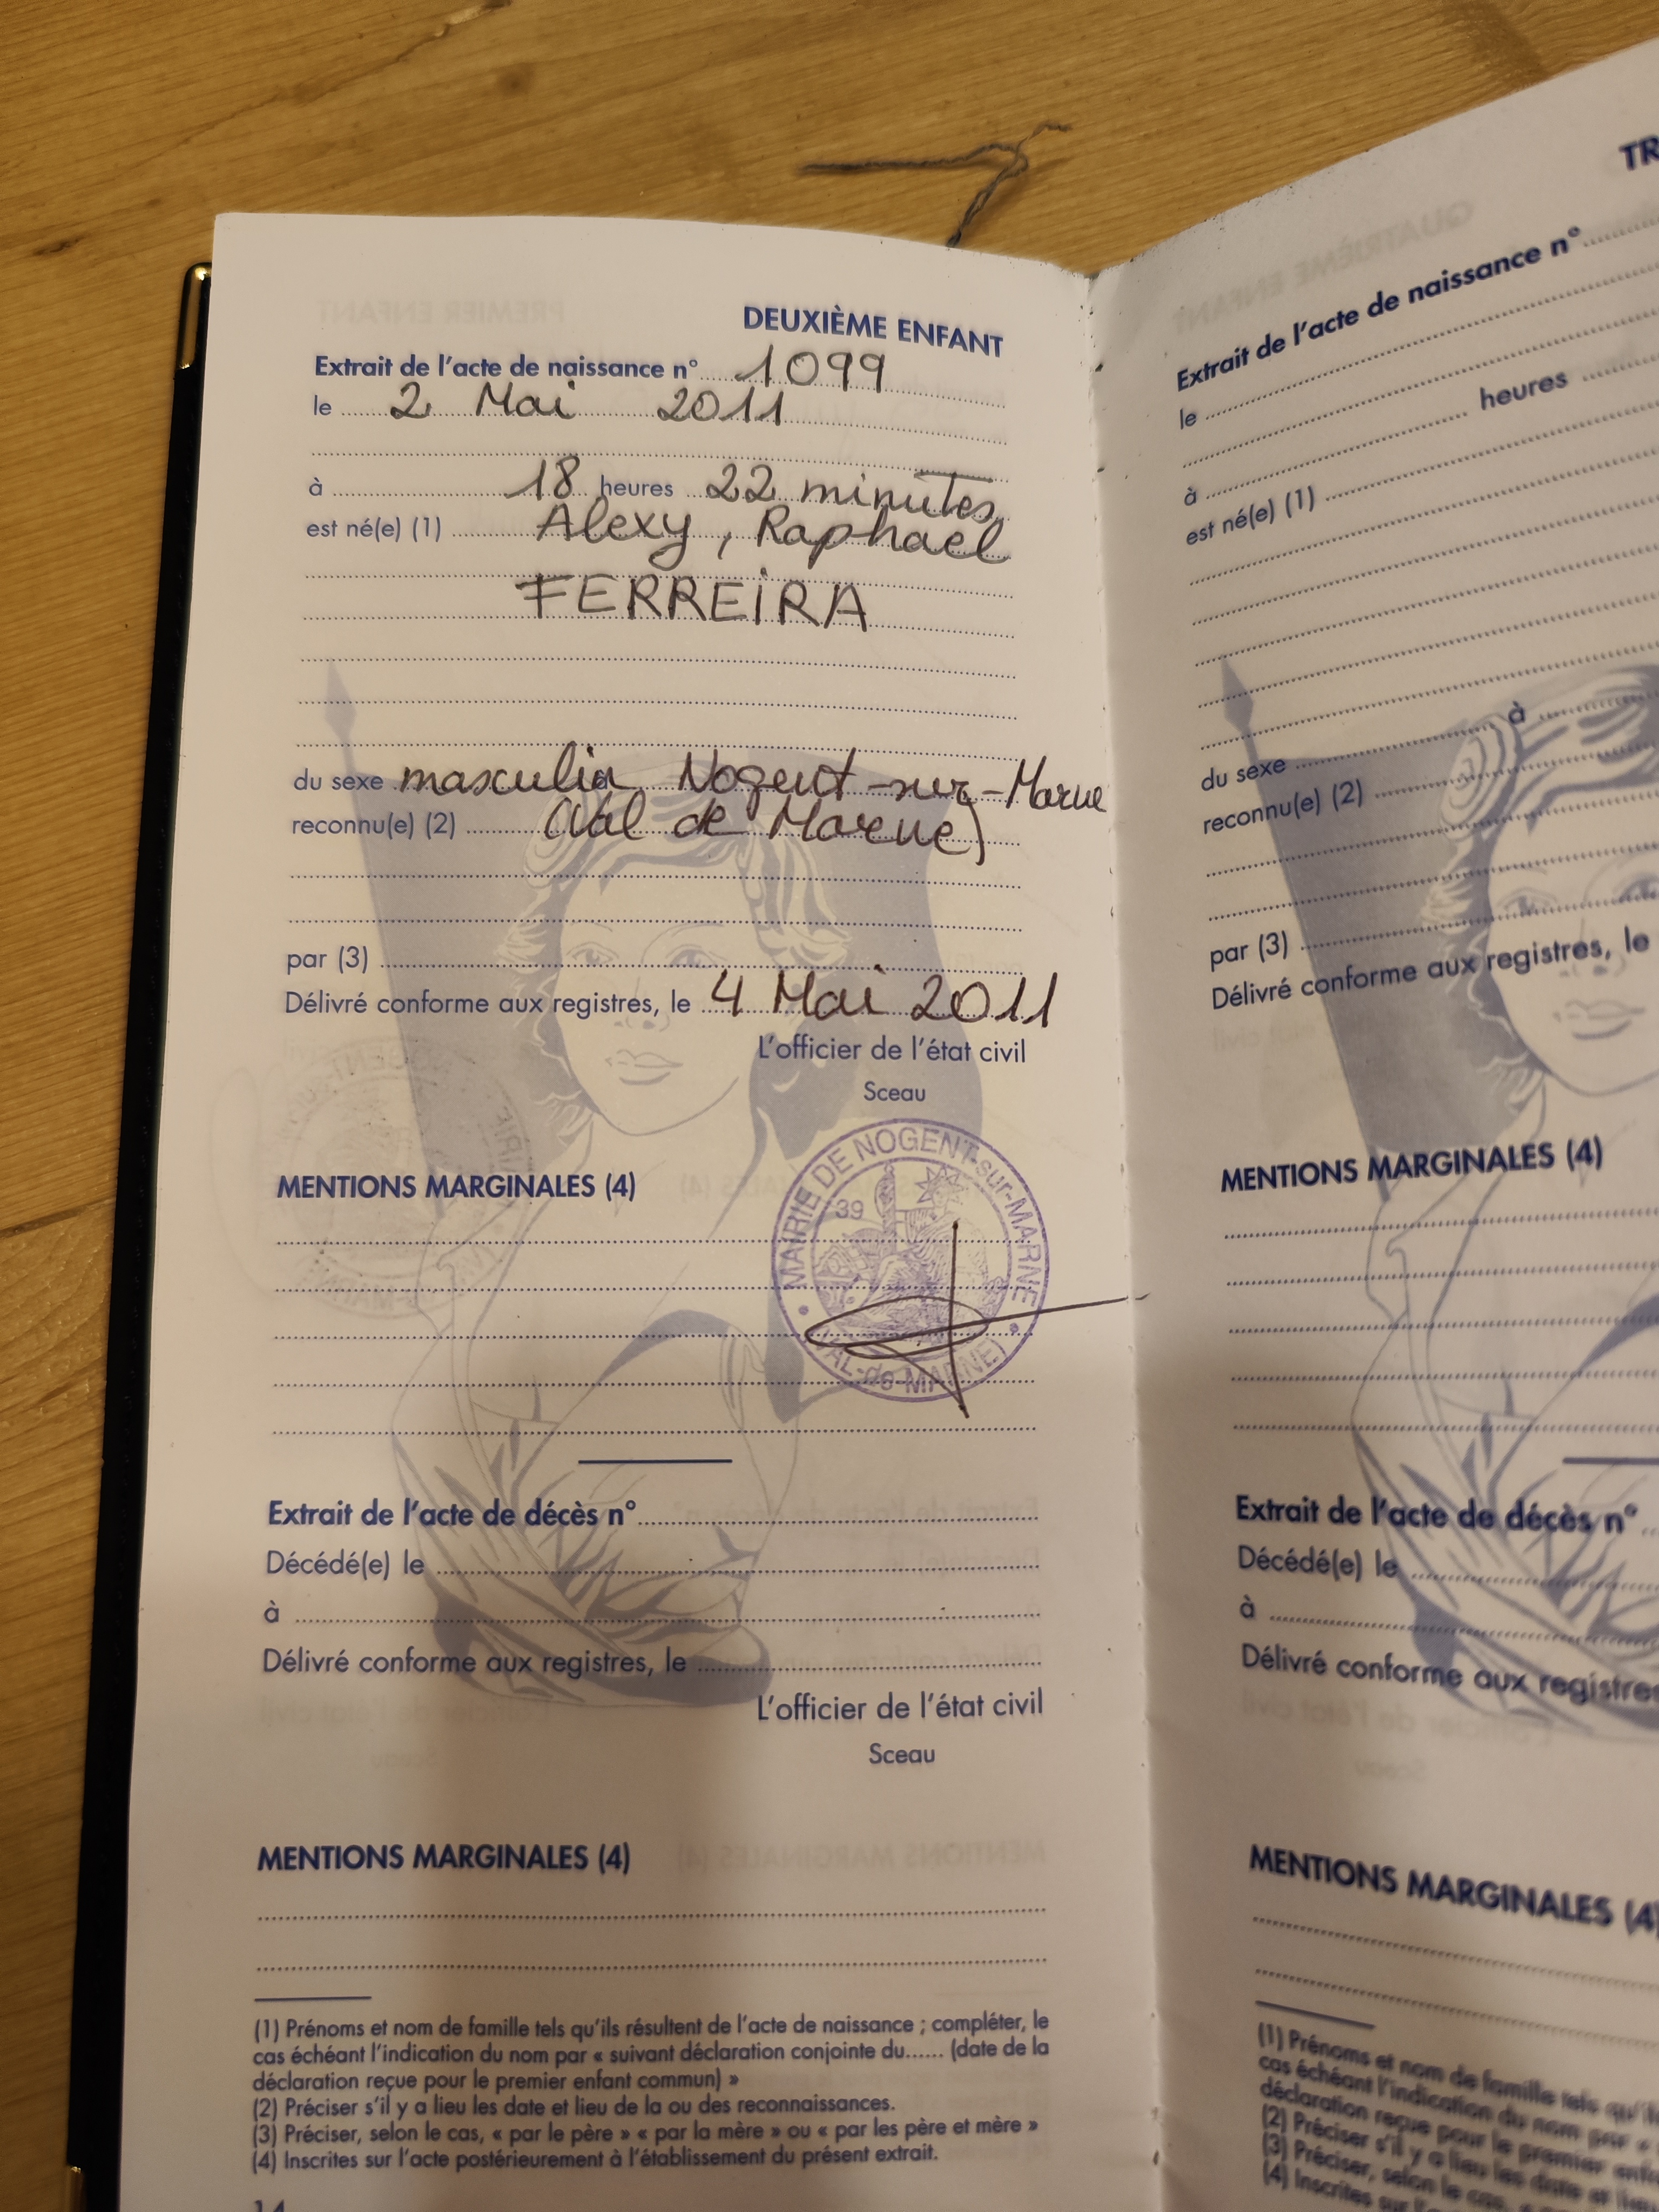 DEUXIÈME ENFANT
Extrait de l'acte de naissance n° 1099
le 2 Mai 2011
à 18 heures 22 minutes
est né(e) (1) Alexy, Raphael
FERREIRA
du sexe masculin Nogent-sur-Marne
reconnu(e) (2) (Val de Marne)
par (3)
Délivré conforme aux registres, le 4 Mai 2011
L'officier de l'état civil
Sceau
MAIRIE DE NOGENT-sur-MARNE
39
(VAL-de-MARNE)
MENTIONS MARGINALES (4)
Extrait de l'acte de décès n°
Décédé(e) le
à
Délivré conforme aux registres, le
L'officier de l'état civil
Sceau
MENTIONS MARGINALES (4)
(1) Prénoms et nom de famille tels qu'ils résultent de l'acte de naissance ; compléter, le
cas échéant l'indication du nom par « suivant déclaration conjointe du...... (date de la
déclaration reçue pour le premier enfant commun) »
(2) Préciser s'il y a lieu les date et lieu de la ou des reconnaissances.
(3) Préciser, selon le cas, « par le père » « par la mère » ou « par les père et mère »
(4) Inscrites sur l'acte postérieurement à l'établissement du présent extrait.
14
TR
Extrait de l'acte de naissance n°
le
heures
à
est né(e) (1)
du sexe à
reconnu(e) (2)
par (3)
Délivré conforme aux registres, le
MENTIONS MARGINALES (4)
Extrait de l'acte de décès n°
Décédé(e) le
à
Délivré conforme aux registres
MENTIONS MARGINALES (4)
(1) Prénoms et nom de famille tels qu'ils
cas échéant l'indication du nom par «
déclaration reçue pour le premier enfant
(2) Préciser s'il y a lieu les date et lieu
(3) Préciser, selon le cas,
(4) Inscrites sur l'acte